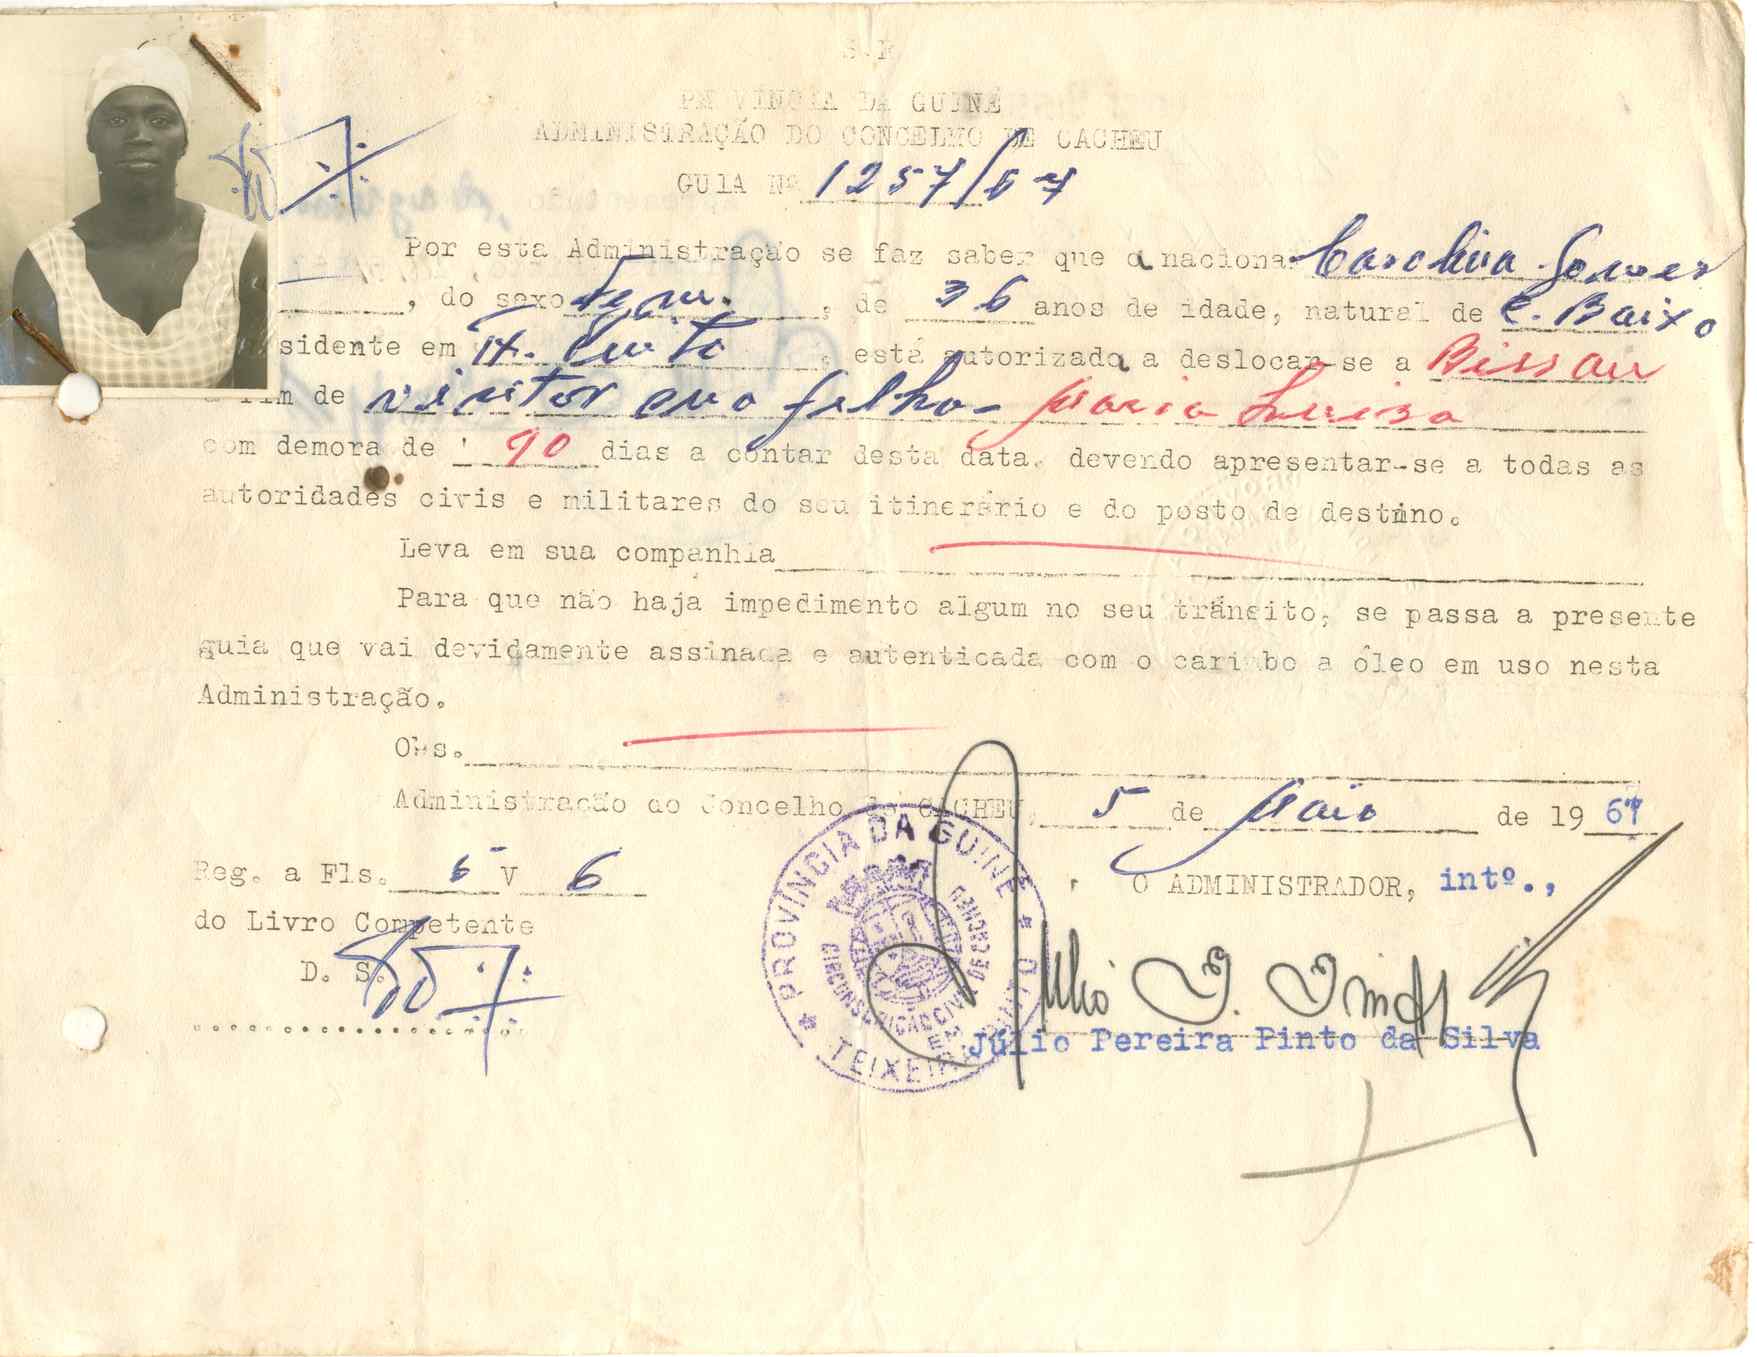 S.R
PROVÍNCIA DA GUINÉ
ADMINISTRAÇÃO DO CONCELHO DE CACHEU
GUIA Nº 1257/67
Por esta Administração se faz saber que a naciona Gomes
, do sexo fem. , de 36 anos de idade, natural de C. Baixo
sidente em , está autorizada a deslocar-se a Bissau
fim de visitar filho- Maria Luisa
com demora de 90 dias a contar desta data, devendo apresentar-se a todas as
autoridades civis e militares do seu itinerário e do posto de destino.
Leva em sua companhia
Para que não haja impedimento algum no seu trânsito, se passa a presente
guia que vai devidamente assinada e autenticada com o carimbo a óleo em uso nesta
Administração.
Obs.
Administração do Concelho de CACHEU, 5 de Maio de 1967
Reg. a Fls. 6 V 6
O ADMINISTRADOR, intº.,
do Livro Competente
D. S.
Júlio Pereira Pinto da Silva
PROVÍNCIA DA GUINÉ
CIRCUNSCRIÇÃO CIVIL DE CACHEU
TEIXEIRA PINTO